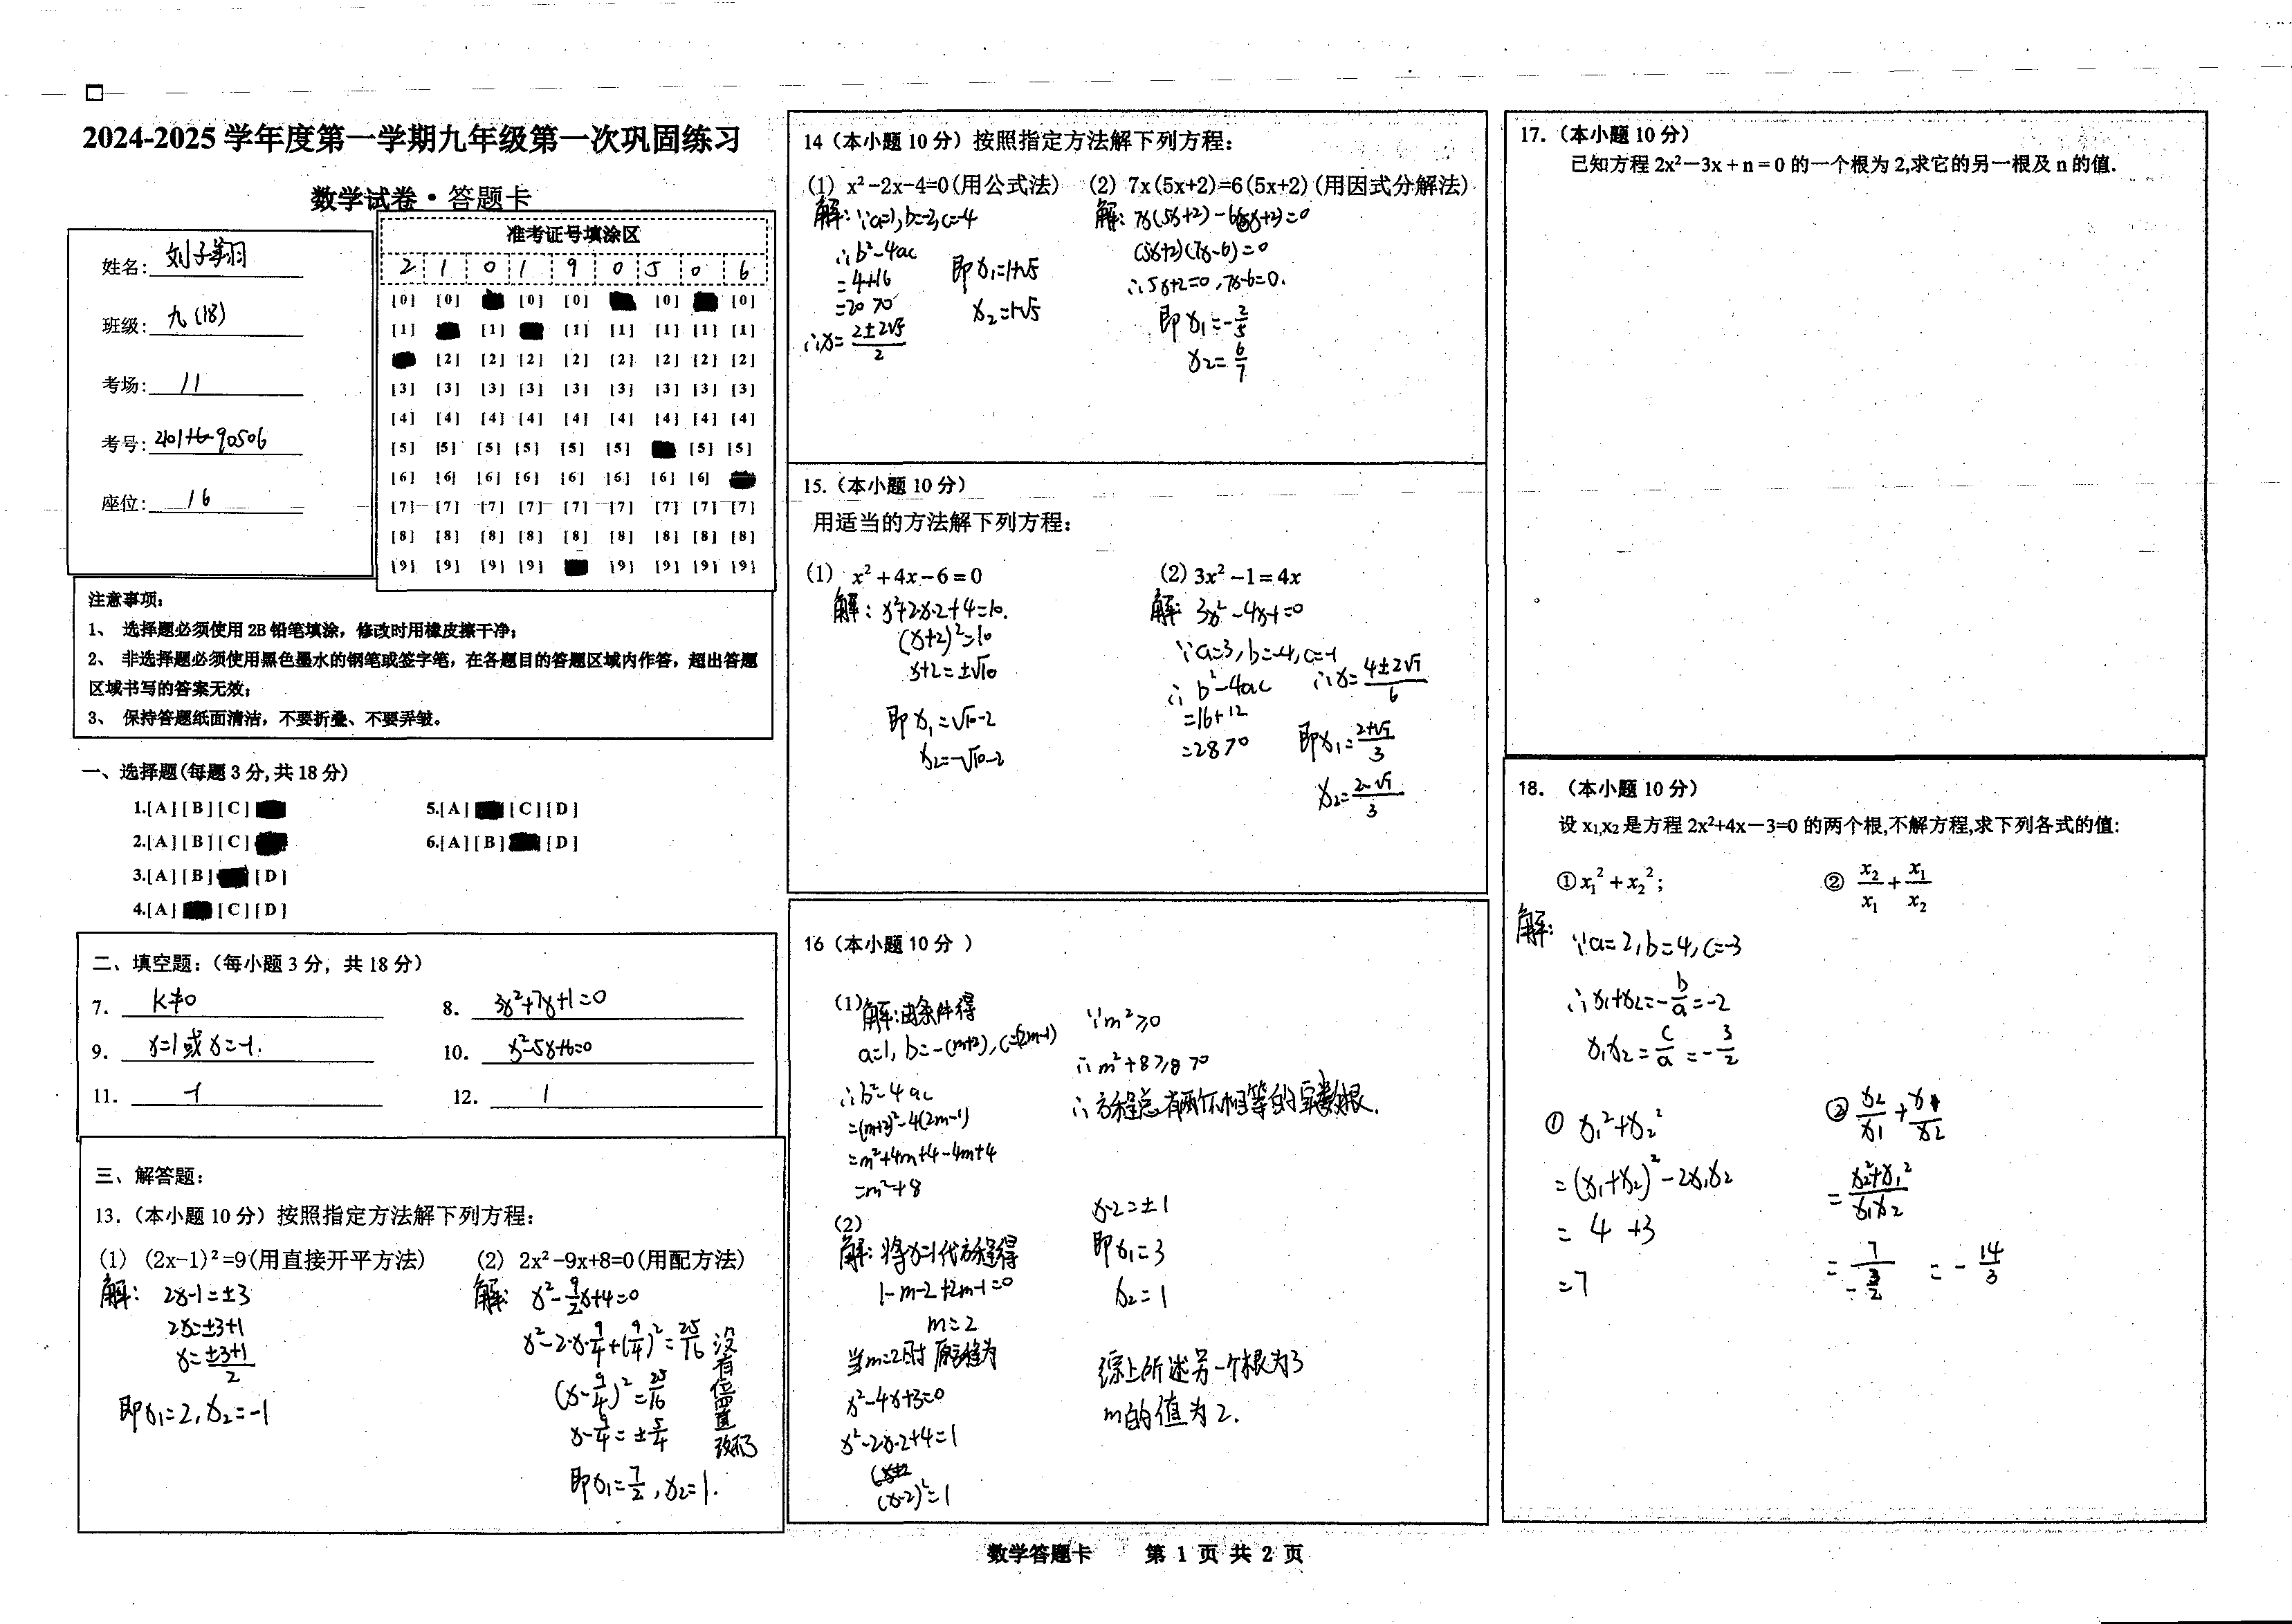 2024-2025 学年度第一学期九年级第一次巩固练习
数学试卷·答题卡
姓名: 刘子翔
班级: 九(18)
考场: 11
座位: 16
准考证号填涂区
2 1 0 1 9 0 5 0 6
[0] [0] [0] [0] [0] [0]
[1] [1] [1] [1] [1] [1] [1]
[2] [2] [2] [2] [2] [2] [2] [2]
[3] [3] [3] [3] [3] [3] [3] [3] [3]
[4] [4] [4] [4] [4] [4] [4] [4] [4]
[5] [5] [5] [5] [5] [5] [5] [5]
[6] [6] [6] [6] [6] [6] [6] [6]
[7] [7] [7] [7] [7] [7] [7] [7] [7]
[8] [8] [8] [8] [8] [8] [8] [8] [8]
[9] [9] [9] [9] [9] [9] [9] [9]
注意事项:
1、 选择题必须使用 2B 铅笔填涂，修改时用橡皮擦干净;
2、 非选择题必须使用黑色墨水的钢笔或签字笔，在各题目的答题区域内作答，超出答题
区域书写的答案无效;
3、 保持答题纸面清洁，不要折叠、不要弄皱。
一、选择题(每题 3 分,共 18 分)
1.[A][B][C]
5.[A] [C][D]
2.[A][B][C]
6.[A][B] [D]
3.[A][B] [D]
4.[A] [C][D]
二、填空题:（每小题 3 分，共 18 分）
7. k≠0
8. 3x²+7x+1=0
9. x=1或x=-1.
10. x²-5x+6=0
11. -1
12. 1
三、解答题:
13.（本小题 10 分）按照指定方法解下列方程:
(1) (2x-1)²=9(用直接开平方法)
解: 2x-1=±3
2x=±3+1
x=±3+1/2
即x₁=2, x₂=-1
(2) 2x²-9x+8=0(用配方法)
解: x²-9/2x+4=0
x²-2·x·9/4+(9/4)²=25/16
(x-9/4)²=25/16
x-9/4=±5/4
即x₁=7/2, x₂=1.
14（本小题 10 分）按照指定方法解下列方程:
(1) x²-2x-4=0(用公式法)
解: ∵a=1, b=-2, c=-4
∴b²-4ac
=4+16
=20>0
∴x=2±2√5/2
即x₁=1+√5
x₂=1-√5
(2) 7x(5x+2)=6(5x+2)(用因式分解法)
解: 7x(5x+2)-6(5x+2)=0
(5x+2)(7x-6)=0
∴5x+2=0, 7x-6=0.
即x₁=-2/5
x₂=6/7
15.（本小题 10 分）
用适当的方法解下列方程:
(1) x²+4x-6=0
解: x²+2·x·2+4=10.
(x+2)²=10
x+2=±√10
即x₁=√10-2
x₂=-√10-2
(2) 3x²-1=4x
解: 3x²-4x-1=0
∵a=3, b=-4, c=-1
∴b²-4ac
=16+12
=28>0
∴x=4±2√7/6
即x₁=2+√7/3
x₂=2-√7/3
16（本小题 10 分 ）
(1)
解:由条件得
a=1, b=-(m+2), c=(2m-1)
∴b²-4ac
=(m+2)²-4(2m-1)
=m²+4m+4-4m+4
=m²+8
∵m²≥0
∴m²+8≥8>0
∴方程总有两个不相等的实数根.
(2)
解:将x=1代方程得
1-m-2+2m-1=0
m=2
当m=2时 原方程为
x²-4x+3=0
x²-2x·2+4=1
(x-2)²=1
x-2=±1
即x₁=3
x₂=1
综上所述另一个根为3
m的值为2.
17.（本小题 10 分）
已知方程 2x²-3x+n=0 的一个根为 2,求它的另一根及 n 的值.
18. （本小题 10 分）
设 x₁,x₂ 是方程 2x²+4x-3=0 的两个根,不解方程,求下列各式的值:
①x₁²+x₂²;
② x₂/x₁+x₁/x₂
解:
∵a=2, b=4, c=-3
∴x₁+x₂=-b/a=-2
x₁x₂=c/a=-3/2
① x₁²+x₂²
=(x₁+x₂)²-2x₁x₂
=4+3
=7
② x₂/x₁+x₁/x₂
=x₂²+x₁²/x₁x₂
=7/-3/2 =-14/3
数学答题卡 第 1 页 共 2 页